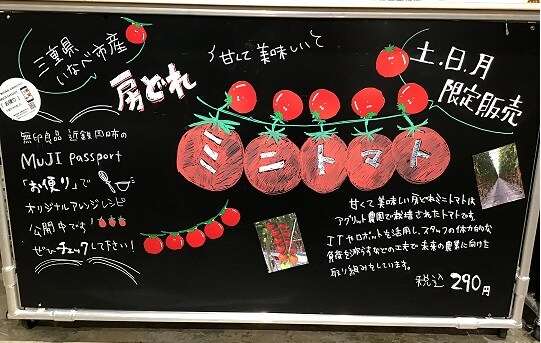 三重県
いなべ市産
甘くて美味しい
房どれ
ミニトマト
土.日.月
限定販売
無印良品 近鉄四日市の
MUJI passport
「お便り」で
オリジナルアレンジレシピ
公開中です!
ぜひチェックして下さい!
甘くて美味しい房どれミニトマトは
アグリット農園で栽培されたトマトです。
ITやロボットを活用し、スタッフの体力的な
負荷を減らすなどの工夫で未来の農業に向けた
取り組みをしています。
税込 290円